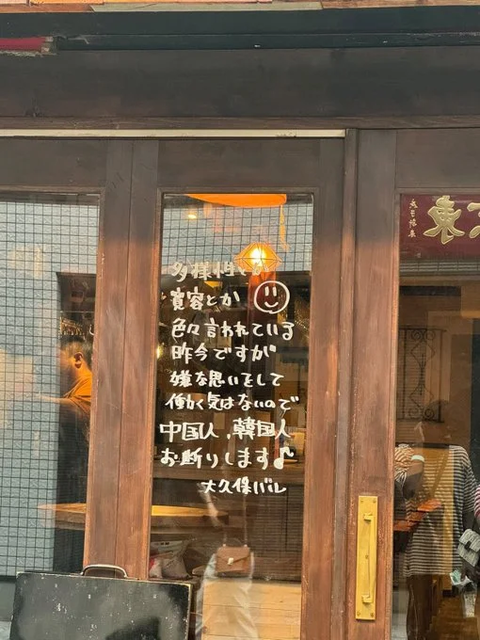 多様性とか
寛容とか
色々言われている
昨今ですが
嫌な思いをして
働く気はないので
中国人、韓国人
お断りします♪
大久保バル
東